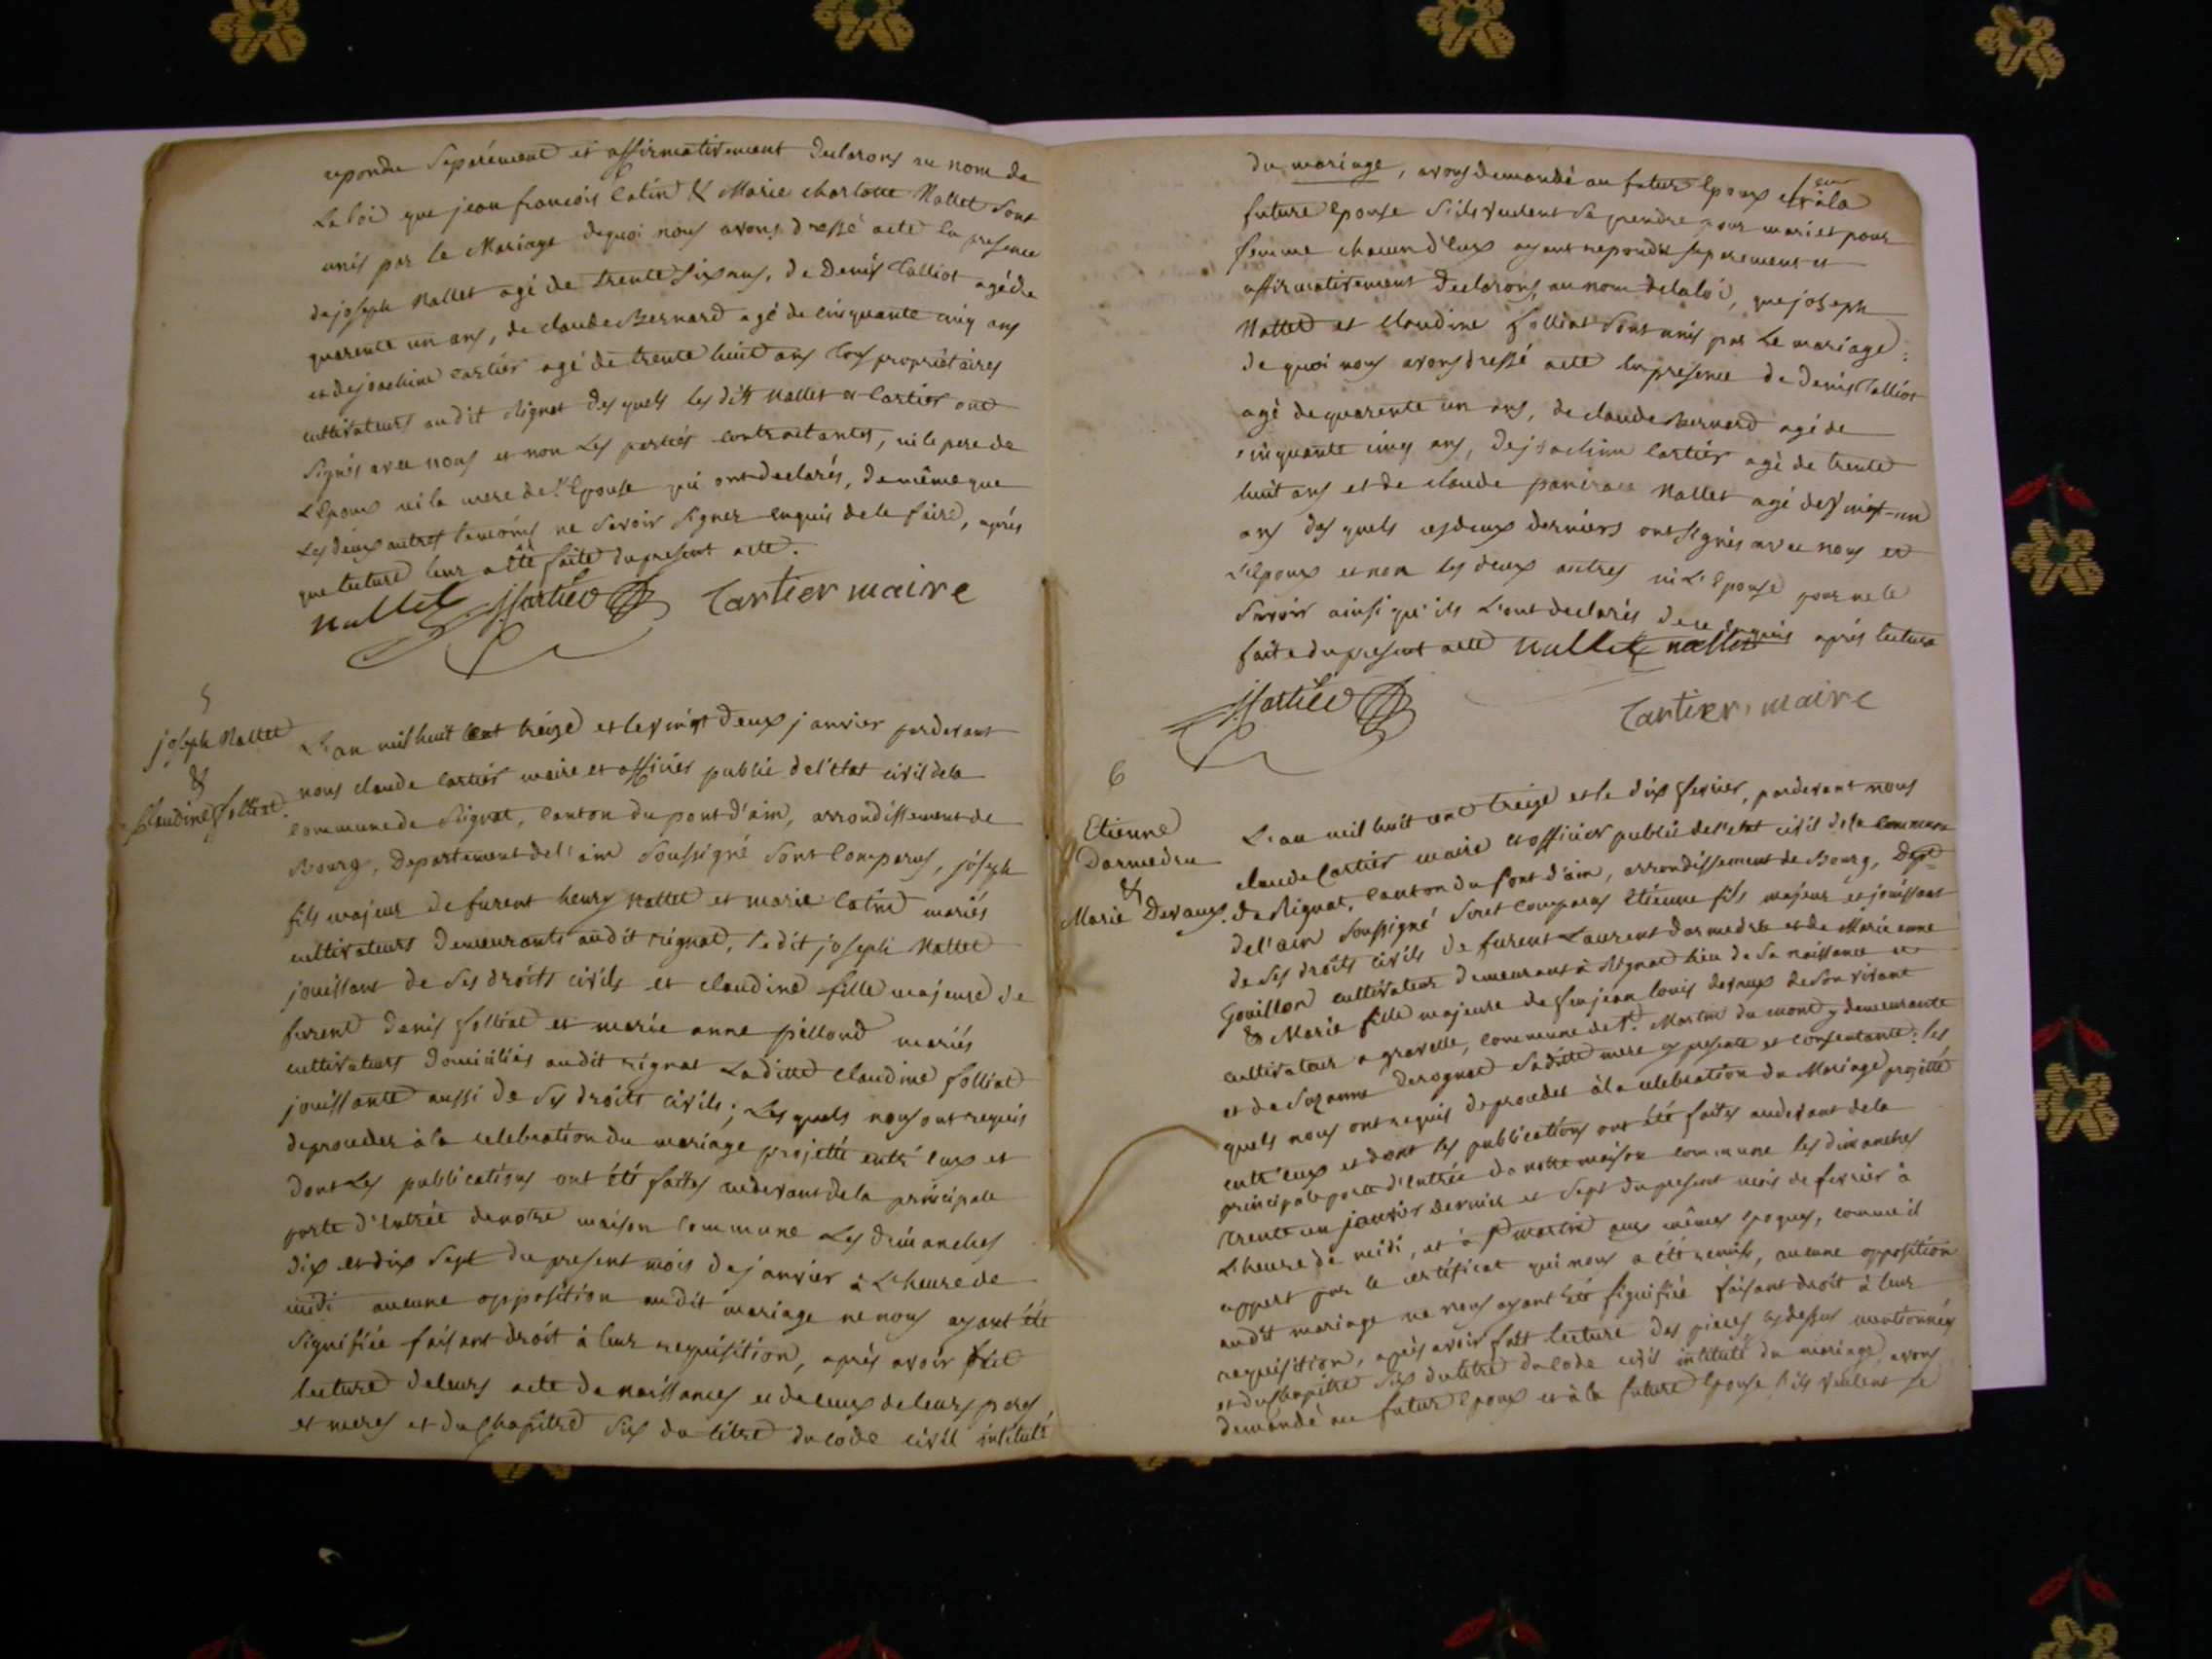 repondu separément et affirmativement declarons au nom de
La loi que jean françois Catin & Marie charlotte Nallet sont
unis par le Mariage dequoi nous avons dressé acte en presence
de joseph Nallet agé de trente six ans, de Denis Calliot agé de
quarente un ans, de claude Bernard agé de cinquante cinq ans
et de joachim cartier agé de trente huit ans tous propriétaires
cultivateurs audit Rignat des quels les dits Nallet et Cartier ont
signés avec nous et non Les parties contractantes, ni le pere de
L'Epoux ni la mere de l'Epouse qui ont declarés, de même que
Les deux autres temoins ne savoir signer enquis de le faire, aprés
que lecture leur a été faite du present acte.
Nallet jjCartier Cartier maire
5
joseph Nallet
&
Claudine folliat.
L'an mil huit cent treize et le vingt deux janvier pardevant
nous claude Cartier maire et officier public de l'etat civil de la
commune de Rignat, Canton du pont d'ain, arrondissement de
Bourg, Departement de l'ain soussigné sont Comparus, joseph
fils majeur de furent henry Nallet et marie Catin mariés
cultivateurs demeurants audit rignat, le dit joseph Nallet
jouissant de ses droits civils et claudine fille majeure de
furent denis folliat et marie anne pillond mariés
cultivateurs domiciliés audit rignat La ditte Claudine folliat
jouissante aussi de ses droits civils; Les quels nous ont requis
de proceder à la celebration du mariage projetté entr'eux et
dont Les publications ont été faites audevant de la principale
porte d'Entrée de notre maison Commune Les dimanches
dix et dix sept du present mois de janvier à L'heure de
midi aucune opposition audit mariage ne nous ayant été
signifiée faisant droit à leur requisition, aprés avoir fait
lecture de leurs acte de naissances et de ceux de leurs peres
et meres et du Chapitre six du titre du code civil intitulé
du mariage, avons demandé au futur Epoux et à la
future Epouse s'ils veulent se prendre pour mari et pour
femme chacun d'eux ayant repondu separement et
affirmativement Declarons, au nom de la loi, que joseph
Nallet et Claudine folliat sont unis par Le mariage;
de quoi nous avons dressé acte en presence de Denis Calliot
agé de quarente un ans, de claude Bernard agé de
cinquante cinq ans, de joachim Cartier agé de trente
huit ans et de claude pancrace Nallet agé de vingt-un
ans des quels ces deux derniers ont signés avec nous et
l'Epoux et non les deux autres ni L'Epouse pour ne le
savoir ainsi qu'ils L'ont declarés de ce enquis aprés lecture
faite du present acte Nallet nallet
jjCartier Cartier, maire
6
Etienne
Darmedru
&
Marie Devaux.
L'an mil huit cent treize et le dix fevrier, pardevant nous
claude Cartier maire et officier public de l'etat civil de la commune
de Rignat, Canton du Pont d'ain, arrondissement de Bourg, Dept
de l'ain soussigné sont Comparus Etienne fils majeur et jouissant
de ses droits civils de furent Laurent darmedru et de Marie anne
Gouillon cultivateur demeurant à Rignat lieu de sa naissance et
& Marie fille majeure de feu jean louis devaux de son vivant
cultivateur a gravelle, commune de St. Martin du mont y demeurante
et de Suzanne derognat sa ditte mere cy presente et consentante: les
quels nous ont requis de proceder à la celebration du Mariage projetté
entr'eux et dont les publications ont été faites audevant de la
principale porte d'entrée de notre maison commune les dimanches
trente un janvier dernier et sept du present mois de fevrier à
L'heure de midi, et à St martin aux mêmes epoques, comme il
appert par le certificat qui nous a été remis, aucune opposition
audit mariage ne nous ayant été signifiée faisant droit à leur
requisition, aprés avoir fait lecture des pieces cy dessus mentionnées
et du Chapitre six du titre du Code civil intitulé du mariage avons
demandé au futur Epoux et à la future Epouse s'ils veulent se